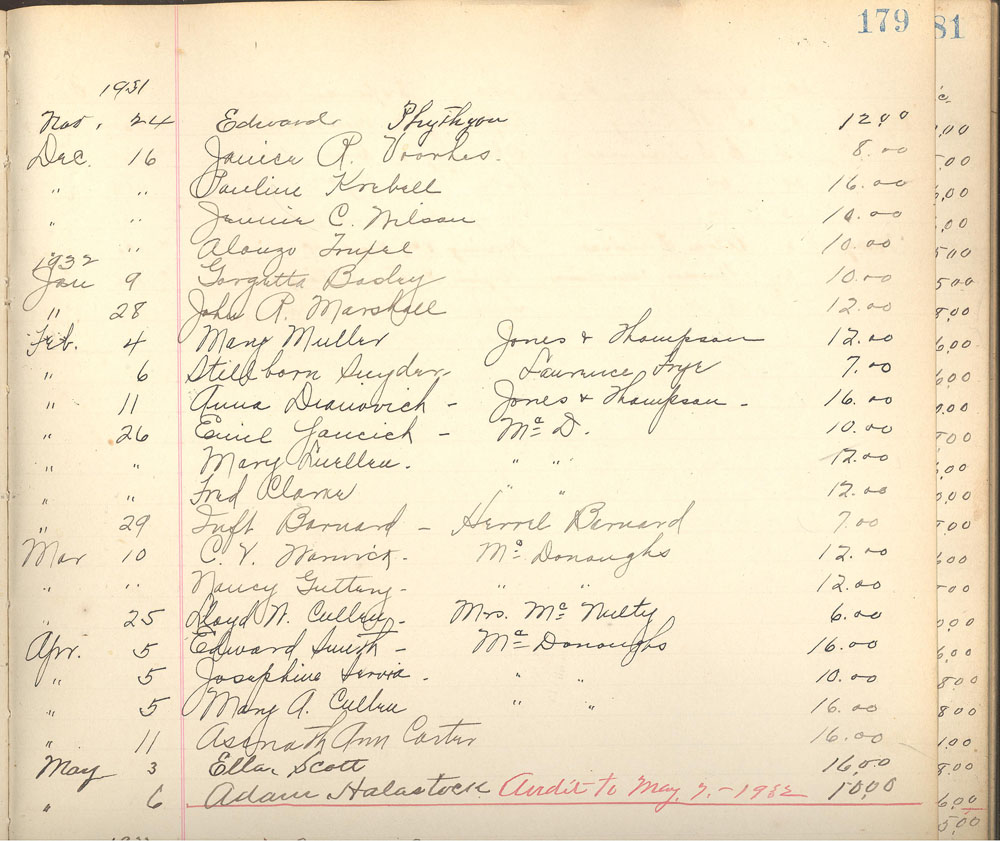 179 81
1931
Nov. 24 Edward Phythyon 12.00
Dec. 16 Janice R. Voorhes. 8.00
" " Pauline Krebell 16.00
" " Jennie C. Wilson 10.00
" " Alonzo 10.00
1932
Jan 9 Gorgetta Basley 10.00
" 28 John R. Marshall 12.00
Feb. 4 Mary Muller Jones & Thompson 12.00
" 6 Stillborn Snyder Laurence Frye 7.00
" 11 Anna Dianovich - Jones & Thompson - 16.00
" 26 Emil Yancich - Mc D. 10.00
" " Mary Luellen. " " 12.00
" " Fred Clame " " 12.00
" 29 Inft Barnard - Herril Barnard 7.00
Mar 10 C. V. Warwick. Mc Donoughs 12.00
" " Nancy Guttery - " " 12.00
" 25 Lloyd W. Cullen - Mrs. Mc Nulty 6.00
Apr. 5 Edward Smith - Mc Donoughs 16.00
" 5 Josephine Servia. " " 10.00
" 5 Mary A. Cullen " " 16.00
" 11 Asenath Ann Carter 16.00
May 3 Ella Scott 16.00
" 6 Adam Halastock Audit to May, 7, - 1932 10.00